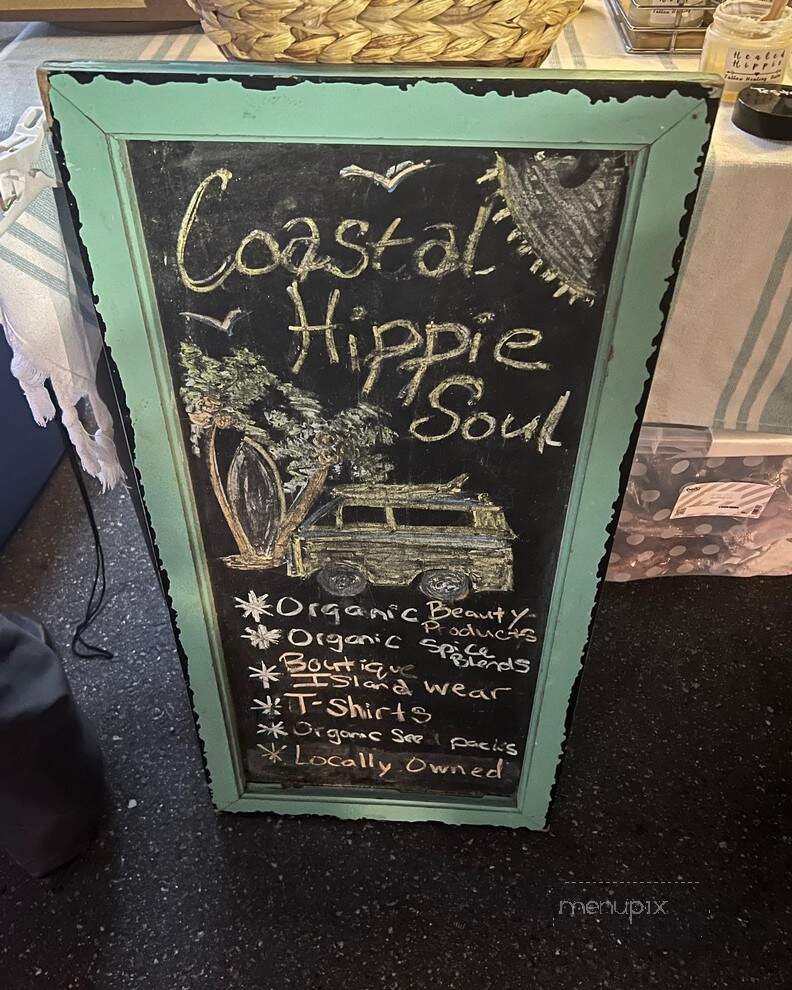 Coastal
Hippie
Soul
Organic Beauty
Products
Organic Spice
Blends
Boutique
Island wear
T-Shirts
Organic Seed packs
Locally Owned
Healed
Hippie
Tallow Healing Balm
menupix